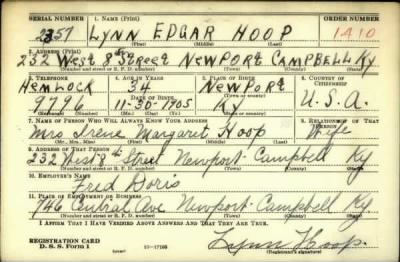 SERIAL NUMBER 1. NAME (Print) ORDER NUMBER
2357 LYNN EDGAR HOOP 1410
(First) (Middle) (Last)
2. ADDRESS (Print)
232 West 8th Street NEWPORT CAMPBELL Ky
(Number and street or R. F. D. number) (Town) (County) (State)
3. TELEPHONE 4. AGE IN YEARS 5. PLACE OF BIRTH 6. COUNTRY OF CITIZENSHIP
HEMLOCK 34 NEWPORT
DATE OF BIRTH (Town or county)
9796 11-30-1905 Ky U.S.A.
7. NAME OF PERSON WHO WILL ALWAYS KNOW YOUR ADDRESS 8. RELATIONSHIP OF THAT PERSON
Mrs Irene Margaret Hoop Wife
(Mr., Mrs., Miss) (First) (Middle) (Last)
9. ADDRESS OF THAT PERSON
232 West 8th Street Newport Campbell Ky
(Number and street or R. F. D. number) (Town) (County) (State)
10. EMPLOYER'S NAME
Fred Doris
11. PLACE OF EMPLOYMENT OR BUSINESS
746 Central Ave Newport Campbell Ky
(Number and street or R. F. D. number) (Town) (County) (State)
I AFFIRM THAT I HAVE VERIFIED ABOVE ANSWERS AND THAT THEY ARE TRUE.
REGISTRATION CARD
D. S. S. Form 1 Lynn Hoop
(Registrant's signature)